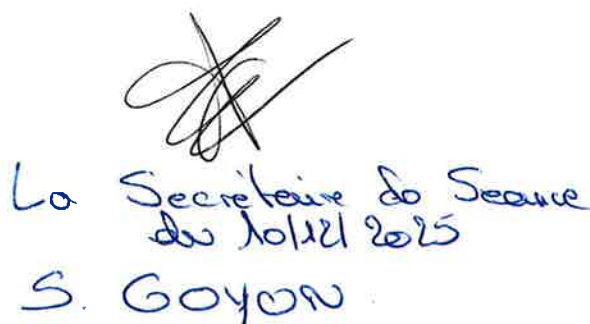 La Secrétaire de Seance
du 10/12/2025
S. GOYON